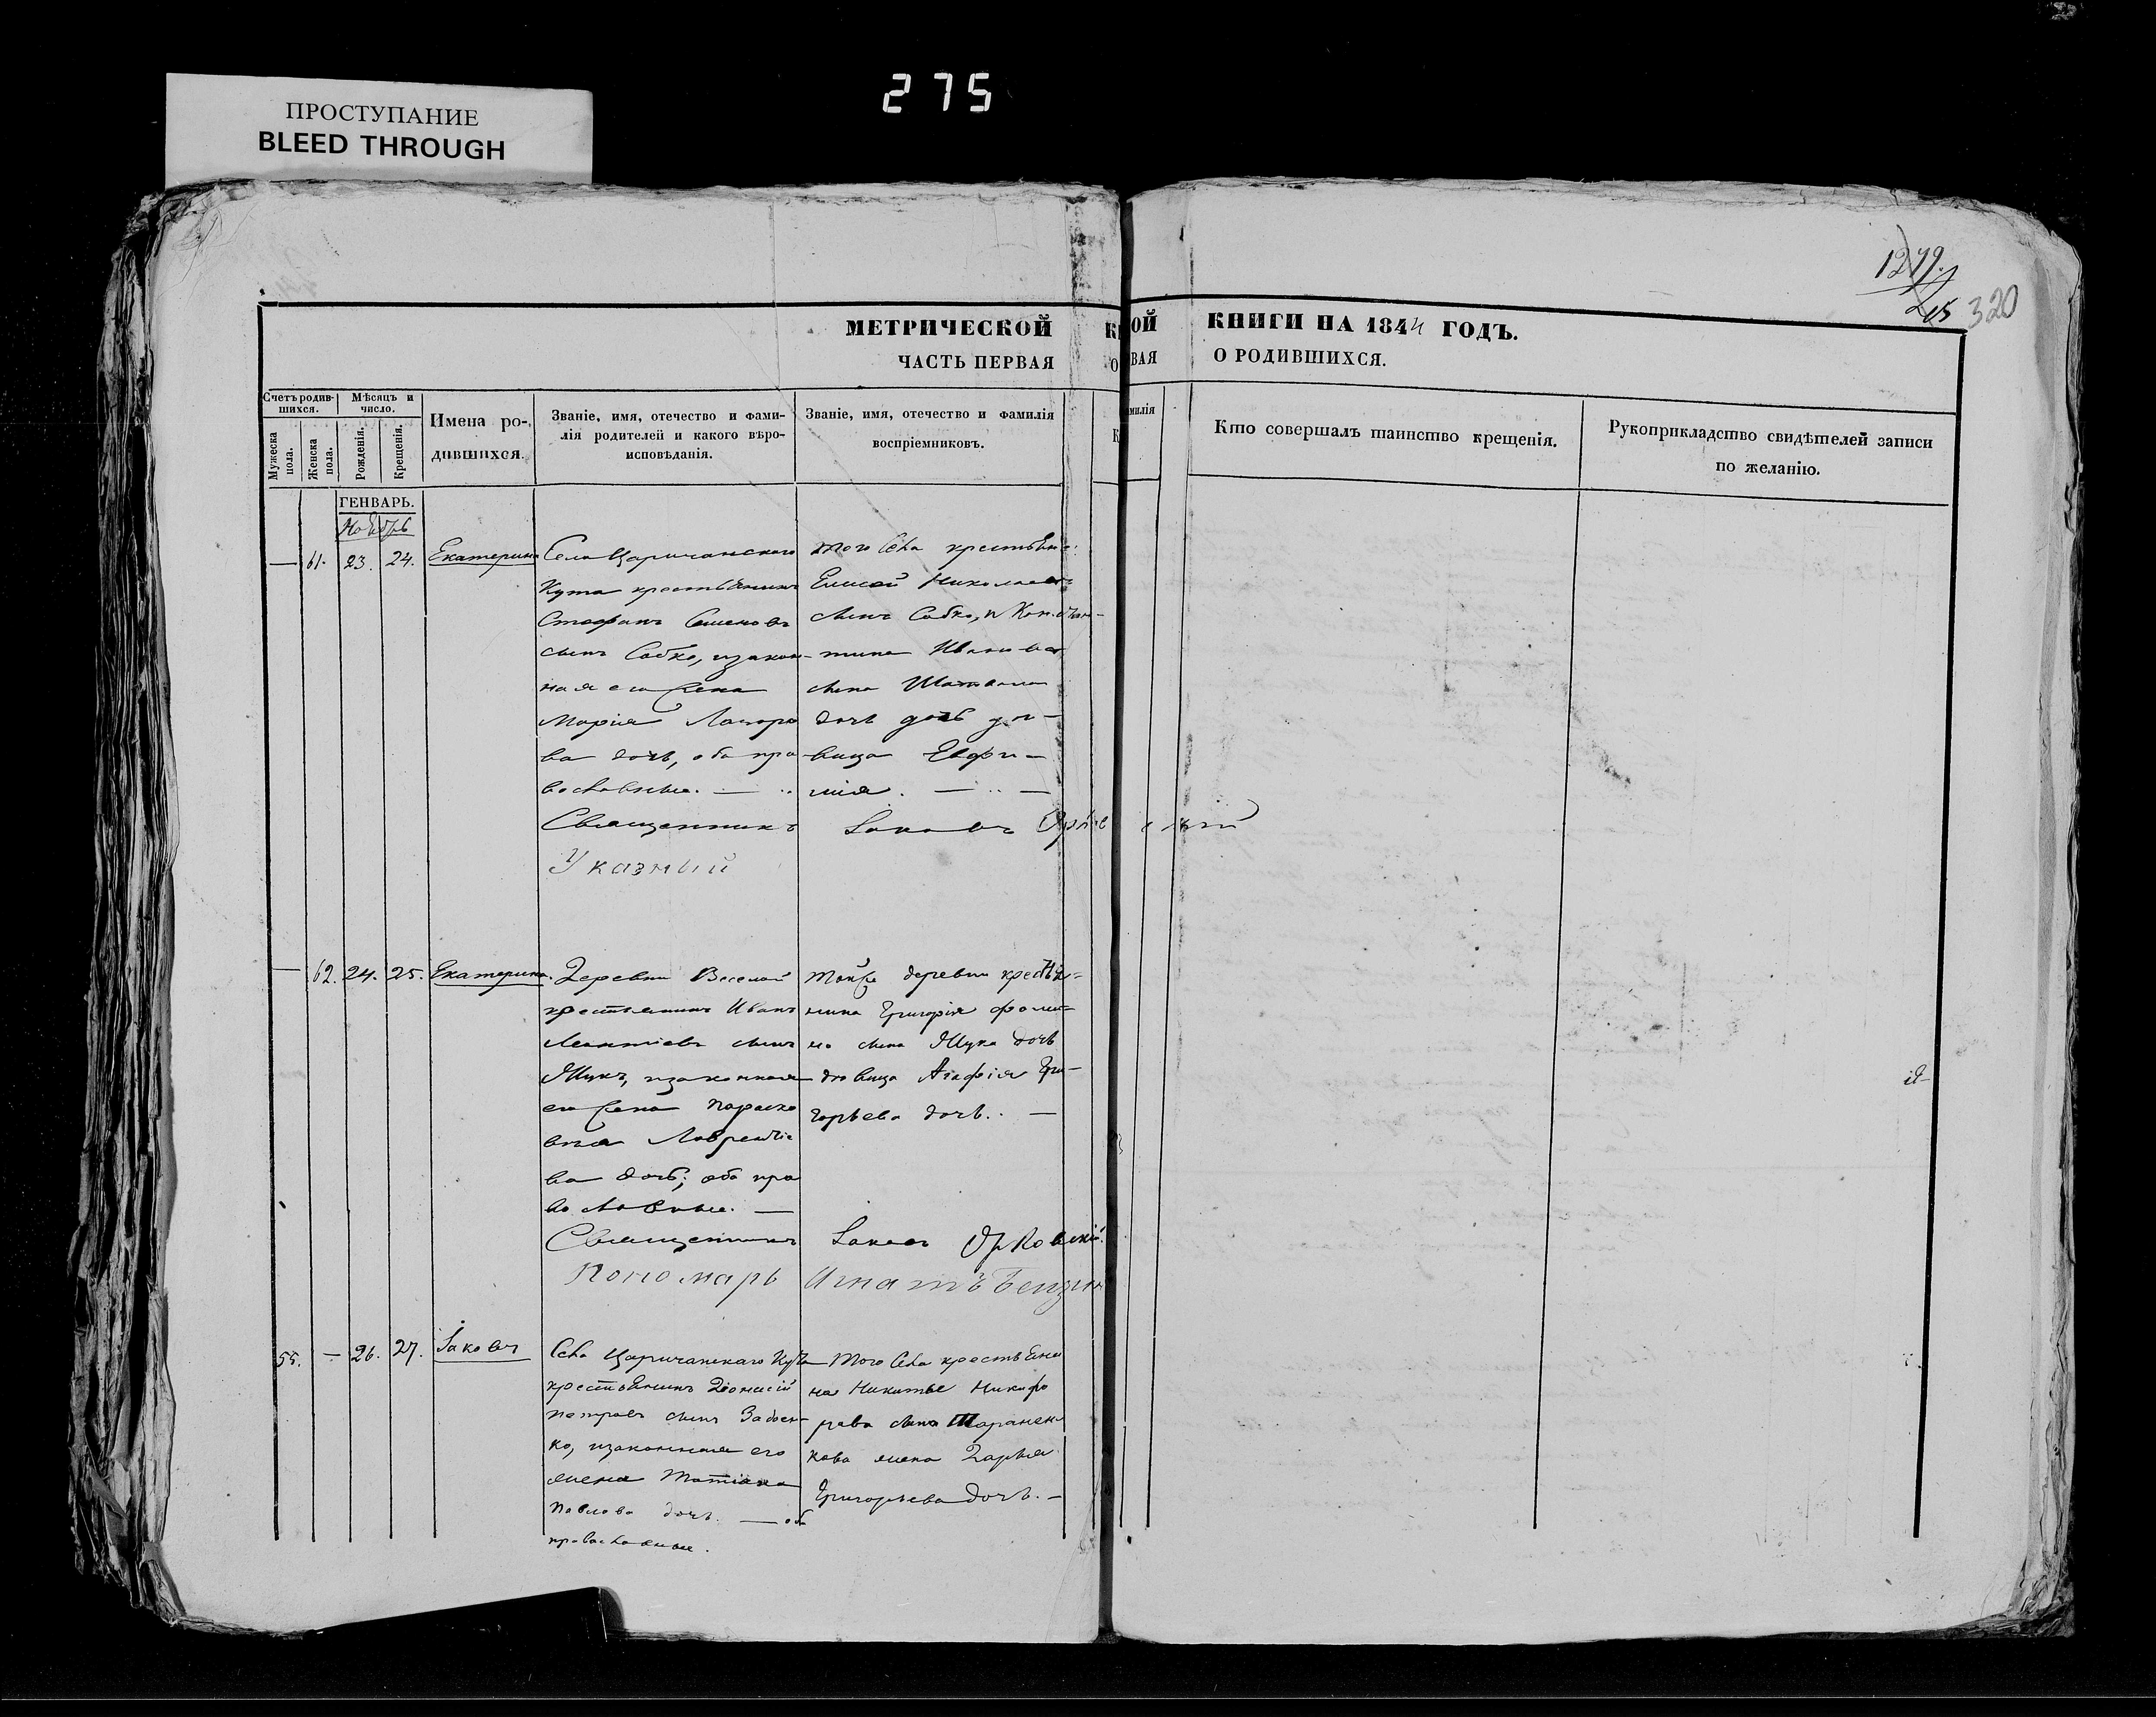 275
ПРОСТУПАНИЕ
BLEED THROUGH
1279.
215 320
МЕТРИЧЕСКОЙ КНИГИ НА 1844 ГОДЪ.
ЧАСТЬ ПЕРВАЯ О РОДИВШИХСЯ.
Счетъ родив-
шихся.
Мѣсяцъ и
число.
Мужеска пола.
Женска пола.
Рожденія.
Крещенія.
Имена ро-
дившихся.
Званіе, имя, отечество и фами-
лія родителей и какого вѣро-
исповѣданія.
Званіе, имя, отечество и фамилія
воспріемниковъ.
Кто совершалъ таинство крещенія.
Рукоприкладство свидѣтелей записи
по желанію.
ГЕНВАРЬ.
Ноябрь
— 61. 23. 24. Екатерина
Села Царичанскаго
Кута крестьянинъ
Стефанъ Семеновъ
сынъ Собко, и закон-
ная его жена
Марія
ва дочь, оба пра
вославные. —
того Села крестьян
Елисей Николаевъ
сынъ Собко, и Констан-
тина Иванова
сына
дочь дѣ-
вица Евфи-
мія. —
Священникъ Іаковъ
Указный
— 62. 24. 25. Екатерина.
Деревни Веселой
крестьянинъ Иванъ
Леонтіевъ сынъ
Жукъ, и законная
его жена Параске
вна Лаврентіе
ва дочь; оба пра
вославные. —
Той же деревни крестья-
нина Григорія Фоми-
на сына Жука дочь
дѣвица Агафія Гри-
горьева дочь. —
Священникъ Іаковъ
Пономарь Игнатъ
55. — 26. 27. Іаковъ
Села Царичанскаго Кута
крестьянинъ Діонисій
Петровъ сынъ
ко, и законная его
жена Татіана
Павлова дочь. — оба
православные.
Того Села крестьяни
на Никиты Никифо
рова сына Таранен
кова жена Дарья
Григорьева дочь. —